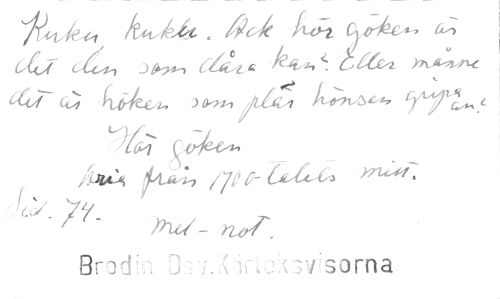 Kuku kuku. Ack hör göken är
det den som dåra kan? Eller månne
det är höken som plär hönsen gripa an?
Hör göken
Aria från 1700-talets mitt.
Sid. 74.
Mel-not.
Brodin Dsv.Kärleksvisorna